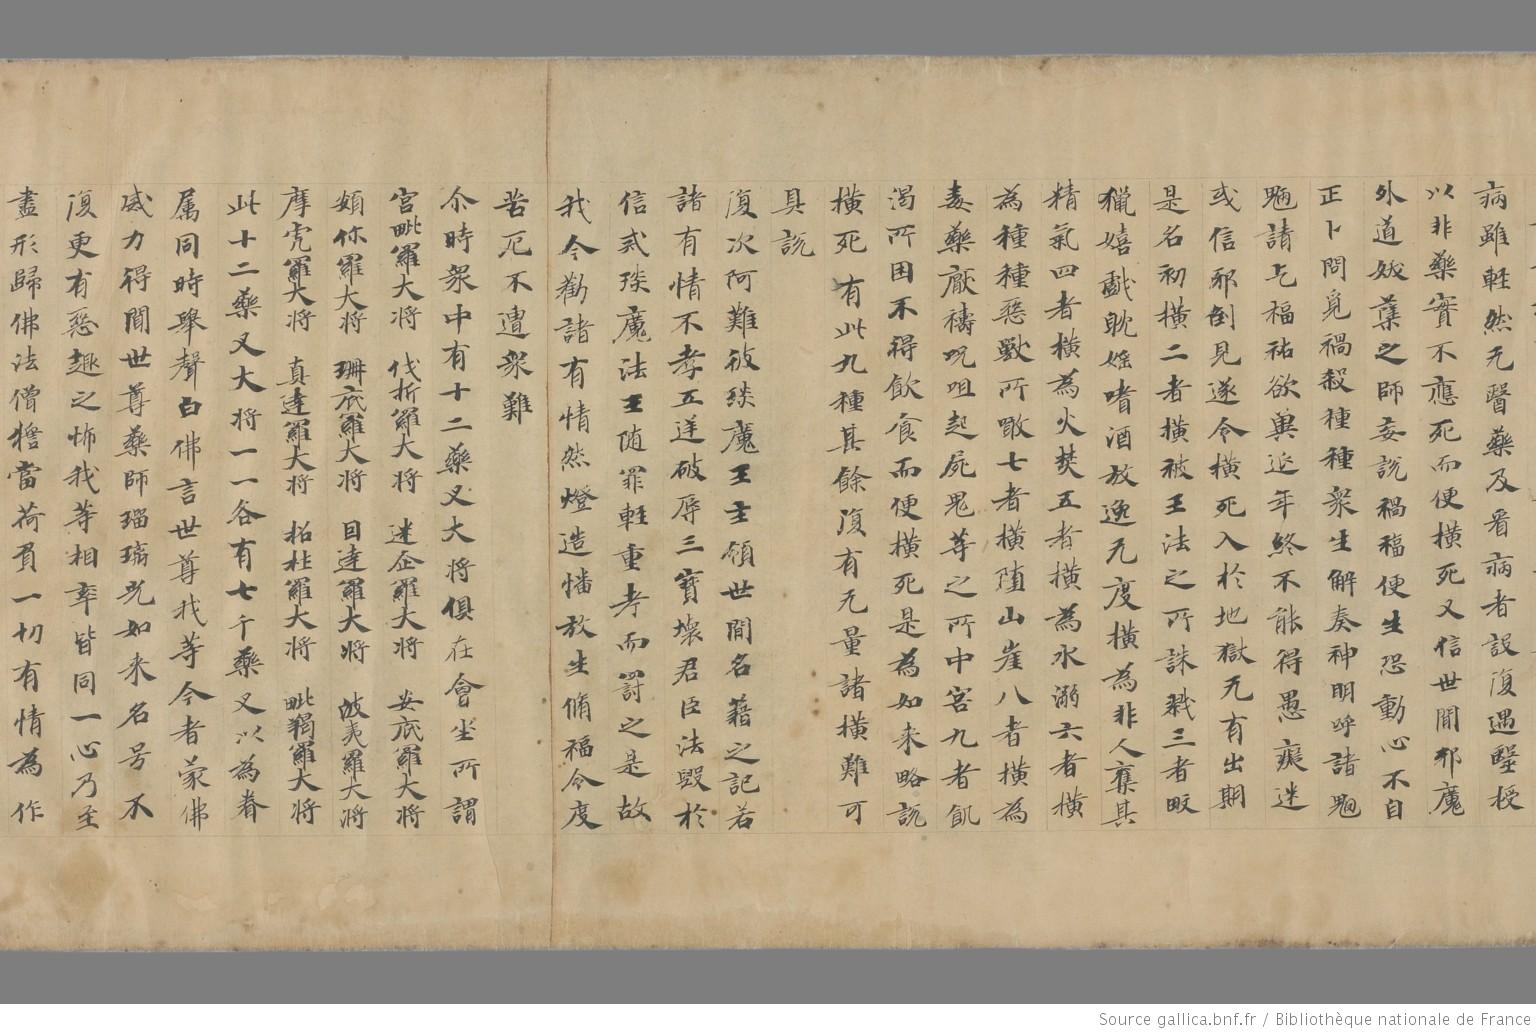 病雖輕然无醫藥及看病者設復遇醫授
以非藥實不應死而便橫死又信世間邪魔
外道妖孽之師妄說禍福便生恐動心不自
正卜問覓禍殺種種衆生解奏神明呼諸魍
魎請乞福祐欲冀延年終不能得愚癡迷
或信邪倒見遂令橫死入於地獄无有出期
是名初橫二者橫被王法之所誅戮三者畋
獵嬉戲耽婬嗜酒放逸无度橫為非人奪其
精氣四者橫為火焚五者橫為水溺六者橫
為種種惡獸所噉七者橫墮山崖八者橫為
毒藥厭禱呪咀起屍鬼等之所中害九者飢
渴所困不得飲食而便橫死是為如來略說
橫死有此九種其餘復有无量諸橫難可
具說
復次阿難彼琰魔王主領世間名籍之記若
諸有情不孝五逆破辱三寶壞君臣法毀於
信戒琰魔法王随罪輕重考而罰之是故
我今勸諸有情然燈造幡放生脩福令度
苦厄不遭衆難
尒時衆中有十二藥叉大將俱在會坐所謂
宮毗羅大將 伐折羅大將 迷企羅大將 安底羅大將
頞你羅大將 珊底羅大將 因達羅大將 波夷羅大將
摩虎羅大將 真達羅大將 招杜羅大將 毗羯羅大將
此十二藥叉大將一一各有七千藥叉以為眷
属同時舉聲白佛言世尊我等今者蒙佛
威力得聞世尊藥師瑠璃光如来名号不
復更有惡趣之怖我等相率皆同一心乃至
盡形歸佛法僧誓當荷負一切有情為作